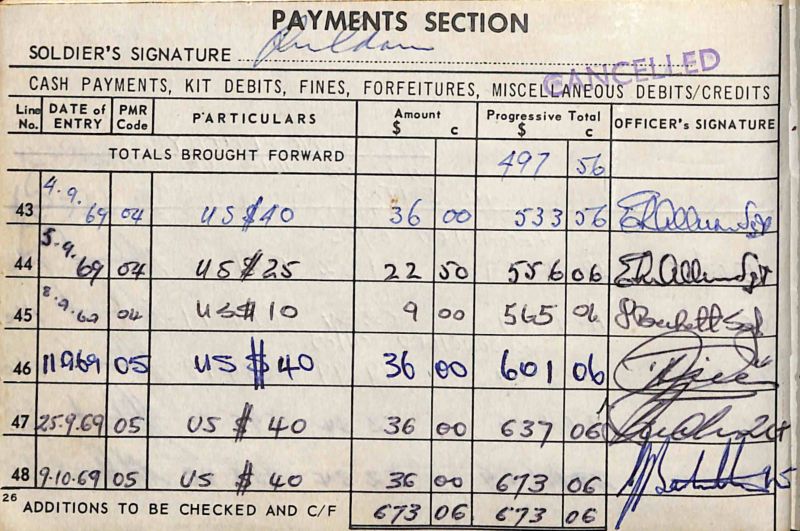 PAYMENTS SECTION
SOLDIER'S SIGNATURE
CANCELLED
CASH PAYMENTS, KIT DEBITS, FINES, FORFEITURES, MISCELLANEOUS DEBITS/CREDITS
Line No. DATE of ENTRY PMR Code PARTICULARS Amount $ c Progressive Total $ c OFFICER's SIGNATURE
TOTALS BROUGHT FORWARD 497 56
43 4.9.69 04 US $40 36 00 533 56
44 5.9.69 04 US $25 22 50 556 06
45 8.9.69 04 US $10 9 00 565 06
46 11 9.69 05 US $40 36 00 601 06
47 25.9.69 05 US $ 40 36 00 637 06
48 9.10.69 05 US $ 40 36 00 673 06
26 ADDITIONS TO BE CHECKED AND C/F 673 06 673 06